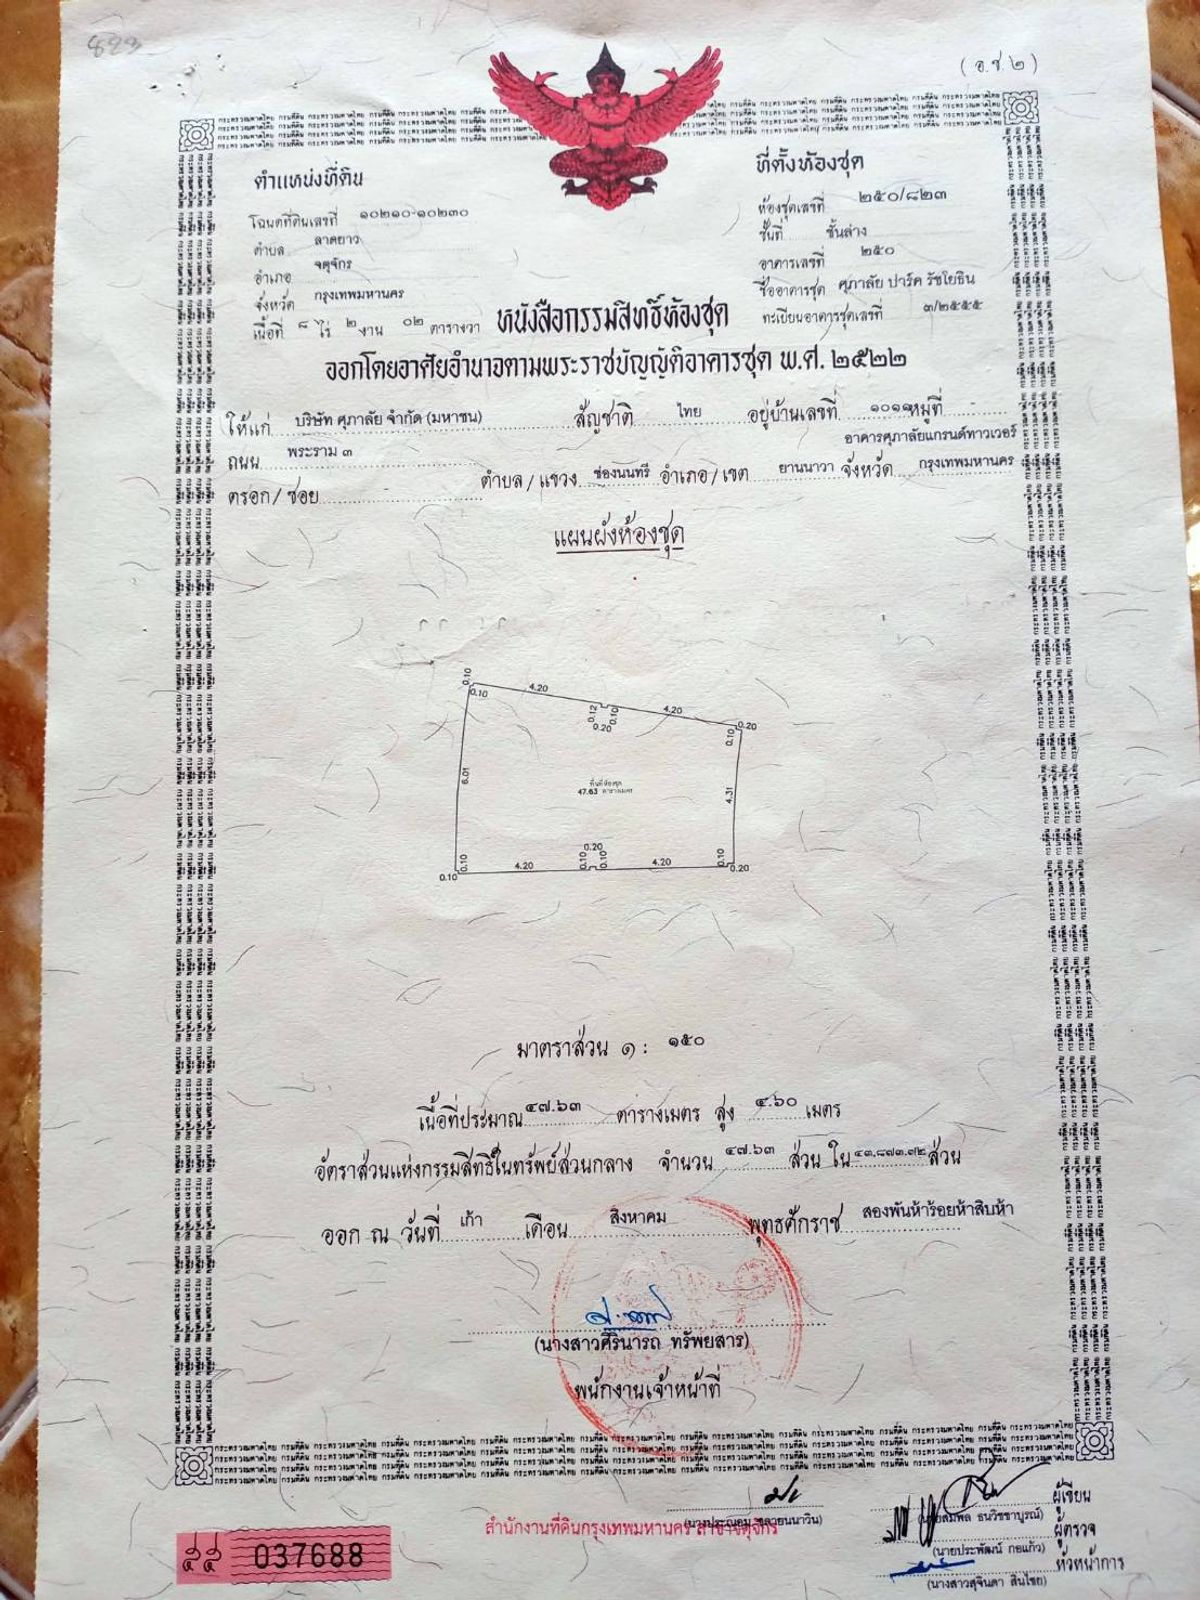 823
(อ.ช.๒)
ตำแหน่งที่ดิน
โฉนดที่ดินเลขที่ ๑๐๒๑๐-๑๐๒๓๐
ตำบล ลาดยาว
อำเภอ จตุจักร
จังหวัด กรุงเทพมหานคร
เนื้อที่ ๘ ไร่ ๒ งาน ๐๒ ตารางวา
ที่ตั้งห้องชุด
ห้องชุดเลขที่ ๒๕๐/๘๒๓
ชั้นที่ ชั้นล่าง
อาคารเลขที่ ๒๕๐
ชื่ออาคารชุด ศุภาลัย ปาร์ค รัชโยธิน
ทะเบียนอาคารชุดเลขที่ ๓/๒๕๕๕
หนังสือกรรมสิทธิ์ห้องชุด
ออกโดยอาศัยอำนาจตามพระราชบัญญัติอาคารชุด พ.ศ. ๒๕๒๒
ให้แก่ บริษัท ศุภาลัย จำกัด (มหาชน) สัญชาติ ไทย อยู่บ้านเลขที่ ๑๐๑๑ หมู่ที่
อาคารศุภาลัยแกรนด์ทาวเวอร์
ถนน พระราม ๓
ตรอก/ซอย ตำบล/แขวง ช่องนนทรี อำเภอ/เขต ยานนาวา จังหวัด กรุงเทพมหานคร
แผนผังห้องชุด
0.10
0.10
4.20
0.12
0.10
0.20
4.20
0.20
0.10
6.01
พื้นที่ห้องชุด
47.63 ตารางเมตร
4.31
0.10
0.10
4.20
0.10
0.20
0.10
4.20
0.10
0.20
มาตราส่วน ๑ : ๑๕๐
เนื้อที่ประมาณ ๔๗.๖๓ ตารางเมตร สูง ๔.๖๐ เมตร
อัตราส่วนแห่งกรรมสิทธิ์ในทรัพย์ส่วนกลาง จำนวน ๔๗.๖๓ ส่วน ใน ๔๓,๘๗๓.๗๒ ส่วน
ออก ณ วันที่ เก้า เดือน สิงหาคม พุทธศักราช สองพันห้าร้อยห้าสิบห้า
(นางสาวศิรินารถ ทรัพยสาร)
พนักงานเจ้าหน้าที่
ผู้เขียน
(นายสมพล ธนวิชชาบูรณ์)
ผู้ตรวจ
(นายประพัฒน์ กอแก้ว)
หัวหน้าการ
(นางสาวสุจินดา สินไชย)
สำนักงานที่ดินกรุงเทพมหานคร สาขาจตุจักร
037688
กระทรวงมหาดไทย กรมที่ดิน